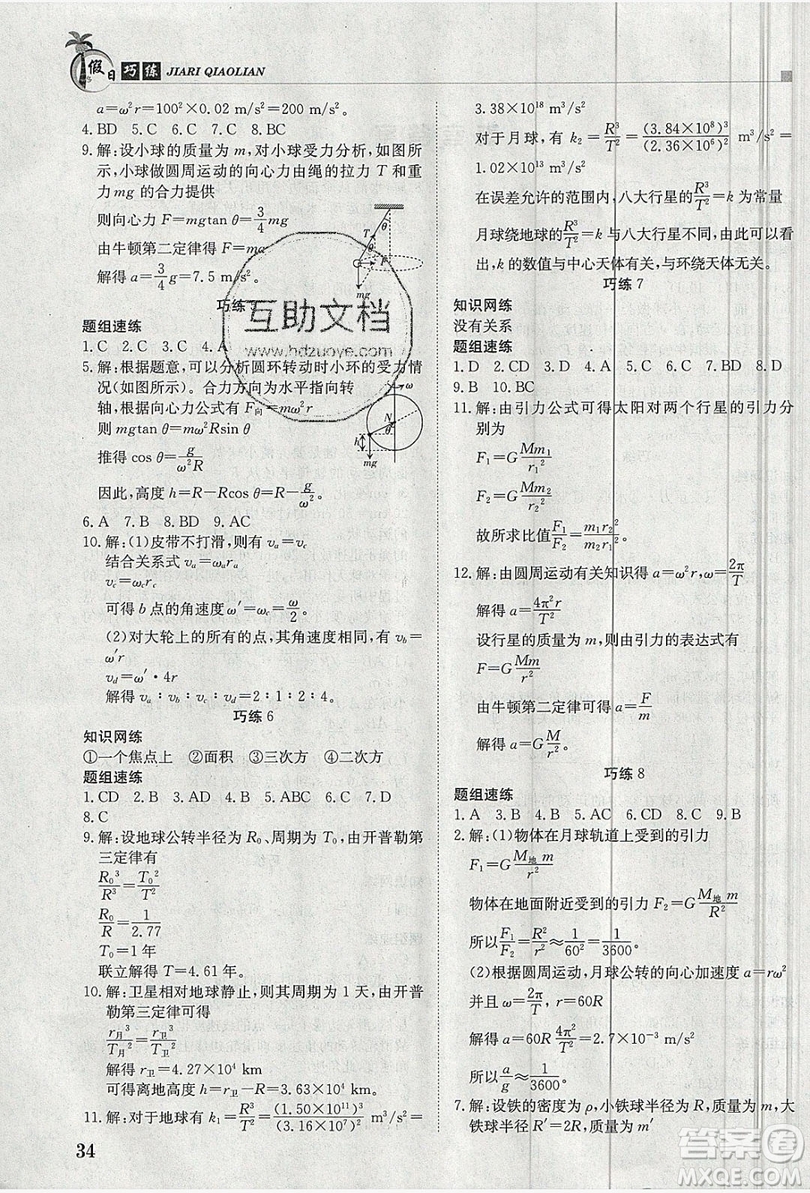 假日巧练 JIARI QIAOLIAN
a=ω²r=100²×0.02 m/s²=200 m/s²
4. BD 5. C 6. C 7. BC 8. BD
9. 解:设小球的质量为 m,对小球受力分析,如图所
示,小球做圆周运动的向心力由绳的拉力 T 和重
力 mg 的合力提供
则向心力 F=mgtan θ=3/4 mg
由牛顿第二定律得 F=ma
解得 a=3/4 g=7.5 m/s².
θ
T
θ
F
mg
巧练
题组速练
1. C 2. C 3. C 4. A
5. 解:根据题意,可以分析圆环转动时小环的受力情
况(如图所示). 合力方向为水平指向转
轴,根据向心力公式有 F向=mω²r
mgtan θ=mω²Rsin θ
推得 cos θ=g/(ω²R)
因此,高度 h=R−Rcos θ=R−g/ω².
N
θ
h
mg
6. A 7. B 8. B 9. AC
10. 解:(1)皮带不打滑,则有 vₐ=v꜀
结合关系式 vₐ=ωr
v꜀=ω꜀·2r
可得 b 点的角速度 ω′=ω꜀=ω/2.
(2)对大轮上的所有的点,其角速度相同,有 v_b=
ω′r
v_d=ω′·4r
解得 vₐ∶v_b∶v꜀∶v_d=2∶1∶2∶4.
巧练 6
知识网练
①一个焦点上 ②面积 ③三次方 ④二次方
题组速练
1. CD 2. B 3. AD 4. B 5. ABC 6. CD 7. D
8. C
9. 解:设地球公转半径为 R₀、周期为 T₀,由开普勒第
三定律有
R₀³/R³=T₀²/T²
R₀/R=1/2.77
联立解得 T=4.61 年.
10. 解:卫星相对地球静止,则其周期为 1 天,由开普
勒第三定律可得
r月³/T月²=r卫³/T卫²
解得 r卫=4.27×10⁴ km
可得离地高度 h=3.63×10⁴ km.
11. 解:对于地球有 k₁=R³/T²=(1.50×10¹¹)³/(3.16×10⁷)² m³/s²=
34
3.38×10¹⁸ m³/s²
对于月球,有 k₂=R³/T²=(3.84×10⁸)³/(2.36×10⁶)² m³/s²=
1.02×10¹³ m³/s²
在误差允许的范围内,八大行星的 R³/T²=k 为常量
月球绕地球的 R³/T²=k 与八大行星不同,由此可以看
出,k 的数值与中心天体有关,与环绕天体无关.
巧练 7
知识网练
没有关系
题组速练
1. D 2. CD 3. D 4. C 5. C 6. B 7. B 8. D
9. B 10. BC
11. 解:由引力公式可得太阳对两个行星的引力分
别为
F₁=G Mm₁/r₁²
F₂=G Mm₂/r₂²
故所求比值 F₁/F₂=m₁r₂²/m₂r₁².
12. 解:由圆周运动有关知识得 a=ω²r,ω=2π/T
解得 a=4π²r/T²
设行星的质量为 m,则有引力的表达式有
F=G Mm/r²
由牛顿第二定律可得 a=F/m
解得 a=G M/r².
巧练 8
题组速练
1. A 2. AD 3. B 4. AC 5. CD 6. CD 8. B
2. 解:(1)物体在月球轨道上受到的引力
F₁=G M地m/r²
物体在地面附近受到的引力 F₂=G M地m/R²
所以 F₁/F₂=R²/r²≈1/60²=1/3600.
(2)根据圆周运动,月球公转的向心加速度 a=rω²
并且 ω=2π/T,r=60R
解得 a=4π²/T²·60R=2.7×10⁻³ m/s²
所以 a/g≈1/3600.
7. 解:设铁的密度为 ρ,小铁球半径为 R,质量为 m,大
铁球半径 R′=2R,质量为 m′
互助文档
www.hdzuoye.com
答案圈
MXQE.COM